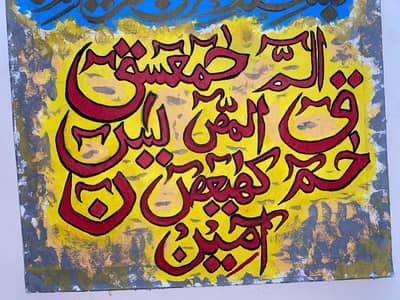 المّ حمعسق
ق المص يس
حم كهيعص ن
امين